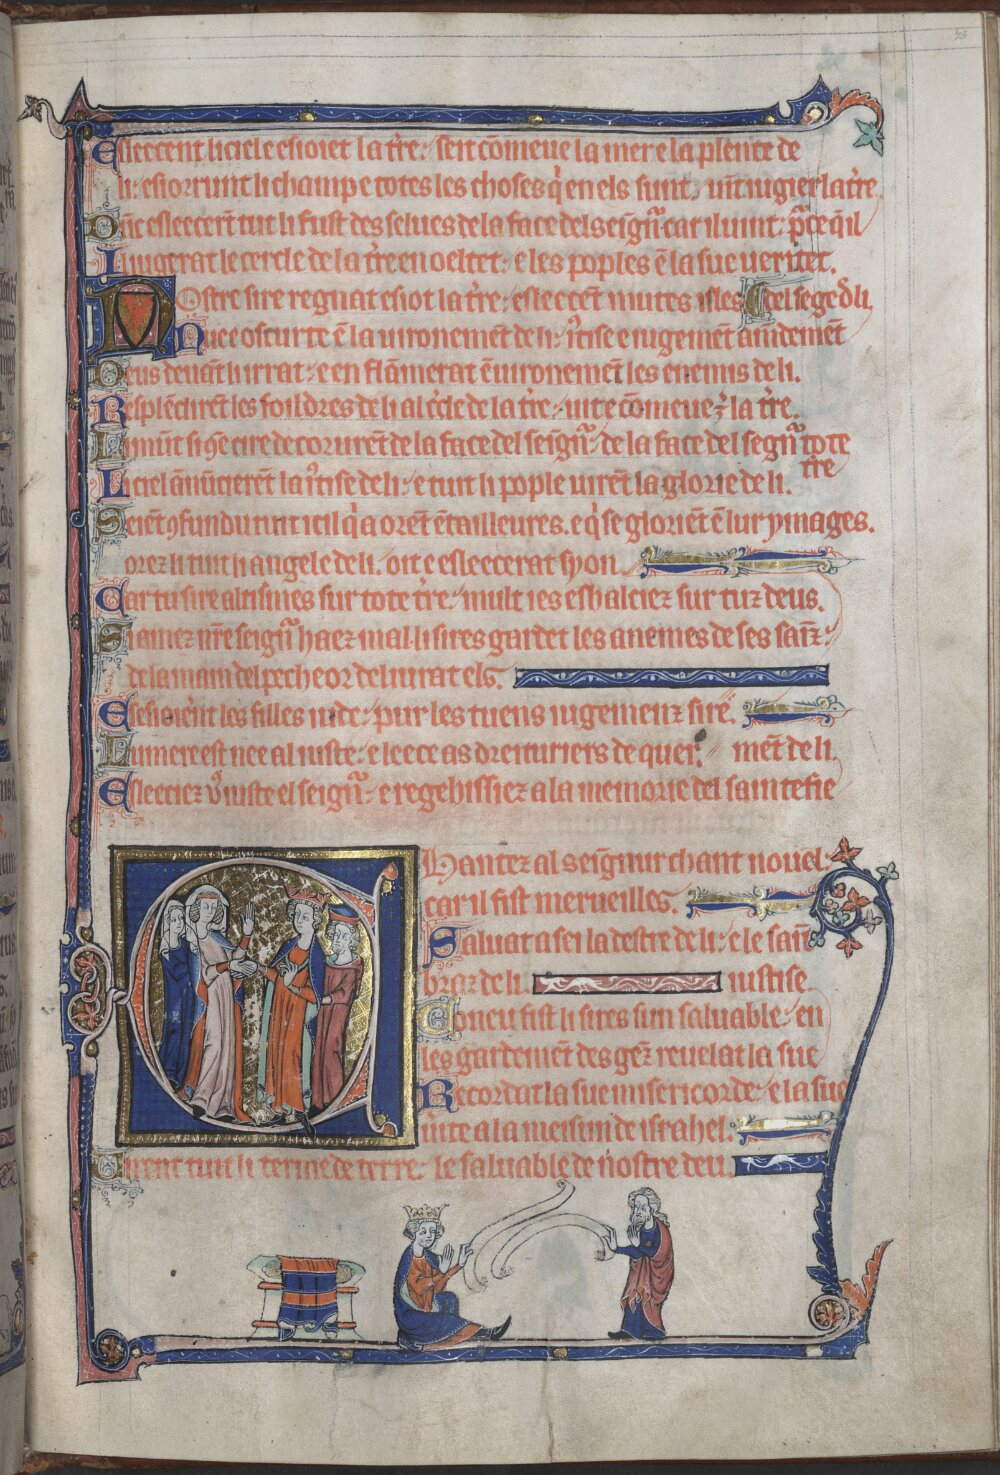 Esleecent li ciel e esioiet la t̄re: seit cōmeue la mer e la plente de
li: esiorrunt li champ e totes les choses q̄ en els sunt.
Dūc esleecerūt tut li fust des selues de la face del seignr̄ car il uint: p̄ce q̄ il
I iugerat le cercle de la t̄re en oeltet: e les poples ē la sue ueritet.
Nostre sire regnat esiot la t̄re: esleecēt mutes isles del sege d̄ li
Nuee oscurte ē la uironemēt de li: iustise e iugemēt amdemēt
Deus deuāt li irrat: e en flāmerat ē uironemēt les enemis de li.
Resplēdirēt les foildres de li al cercle de la t̄re: uit e cōmeue est la t̄re.
Li munt si cume cire decorurēt de la face del seignr̄: de la face del segnr̄ tote
t̄re
Li ciel ānūcierēt la iustise de li: e tuit li pople uirēt la glorie de li.
Seiēt 9fundu tuit icil q̄ aorēt ētailleures. e q̄ se gloriēt ē lur ymages.
orez li tuit li angele de li. oit e esleecerat syon
Car tu sire altismes sur tote t̄re: mult ies eshalciez sur tuz deus.
Si amez n̄re seignr̄ haez mal. li sires gardet les anemes de ses sainz:
de la main del pecheor deliurat els.
Esesioiēnt les filles iude: pur les tuens iugemenz sire.
Lumere est nee al iuste: e leece as dreituriers de quer. mēt de li.
Esleeciez vus iuste el seignr̄: e regehissiez a la memorie del saintefie
Chantez al seignur chant nouel:
car il fist merueilles.
Saluat a sei la destre de li: e le saint
braz de li. iustise
Coneu fist li sires sun saluable: en
les gardemēt des genz reuelat la sue
Recordat la sue misericorde: e la sue
uerite a la meisun de israhel.
Uirent tuit li terme de terre: le saluable de nostre deu.